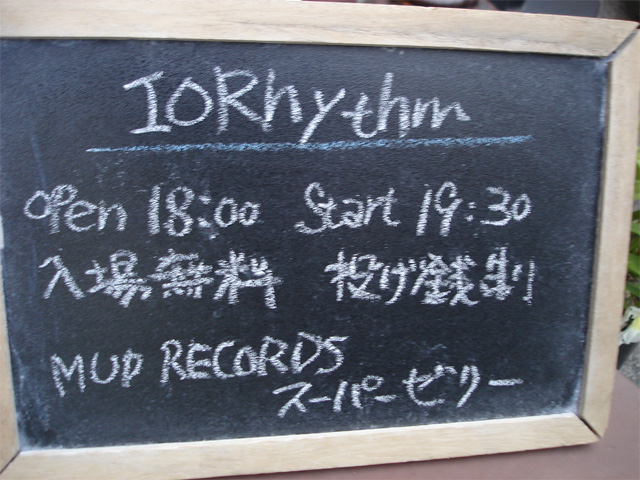 IORhythm
open 18:00 Start 19:30
入場無料 投げ銭制
MUD RECORDS
スーパーゼリー